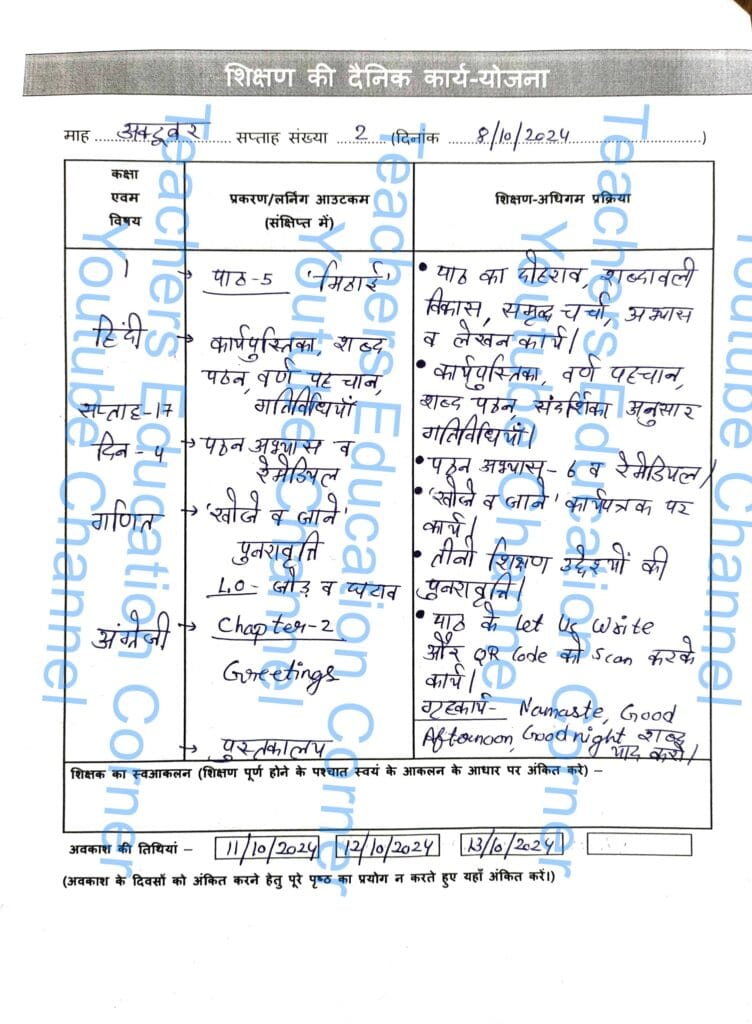 शिक्षण की दैनिक कार्य-योजना
माह अक्टूबर सप्ताह संख्या 2 (दिनांक 8/10/2024)
कक्षा
एवम
विषय
प्रकरण/लर्निंग आउटकम
(संक्षिप्त में)
शिक्षण-अधिगम प्रक्रिया
1
हिंदी
सप्ताह-17
दिन-4
→ पाठ-5 'मिठाई'
→ कार्यपुस्तिका, शब्द
पठन, वर्ण पहचान,
गतिविधियाँ
→ पठन अभ्यास व
रेमेडियल
• पाठ का दोहराव, शब्दावली
विकास, समृद्ध चर्चा, अभ्यास
व लेखन कार्य।
• कार्यपुस्तिका, वर्ण पहचान,
शब्द पठन, संदर्शिका अनुसार
गतिविधियाँ।
• पठन अभ्यास-6 व रेमेडियल।
गणित
→ 'खोजे व जाने'
पुनरावृत्ति
L.O- जोड़ व घटाव
• 'खोजे व जाने' कार्यपत्रक पर
कार्य।
• तीनो शिक्षण उद्देश्यों की
पुनरावृत्ति।
अंग्रेजी
→ Chapter-2
Greetings
• पाठ के Let Us Write
और QR Code को Scan करके
कार्य।
गृहकार्य- Namaste, Good
Afternoon, Good night शब्द
याद करो।
→ पुस्तकालय
शिक्षक का स्वआकलन (शिक्षण पूर्ण होने के पश्चात स्वयं के आकलन के आधार पर अंकित करे) –
अवकाश की तिथियां – 11/10/2024 12/10/2024 13/10/2024
(अवकाश के दिवसों को अंकित करने हेतु पूरे पृष्ठ का प्रयोग न करते हुए यहाँ अंकित करें।)
Teachers Education Corner
Youtube Channel
Teachers Education Corner
Youtube Channel
Teachers Education Corner
Youtube Channel